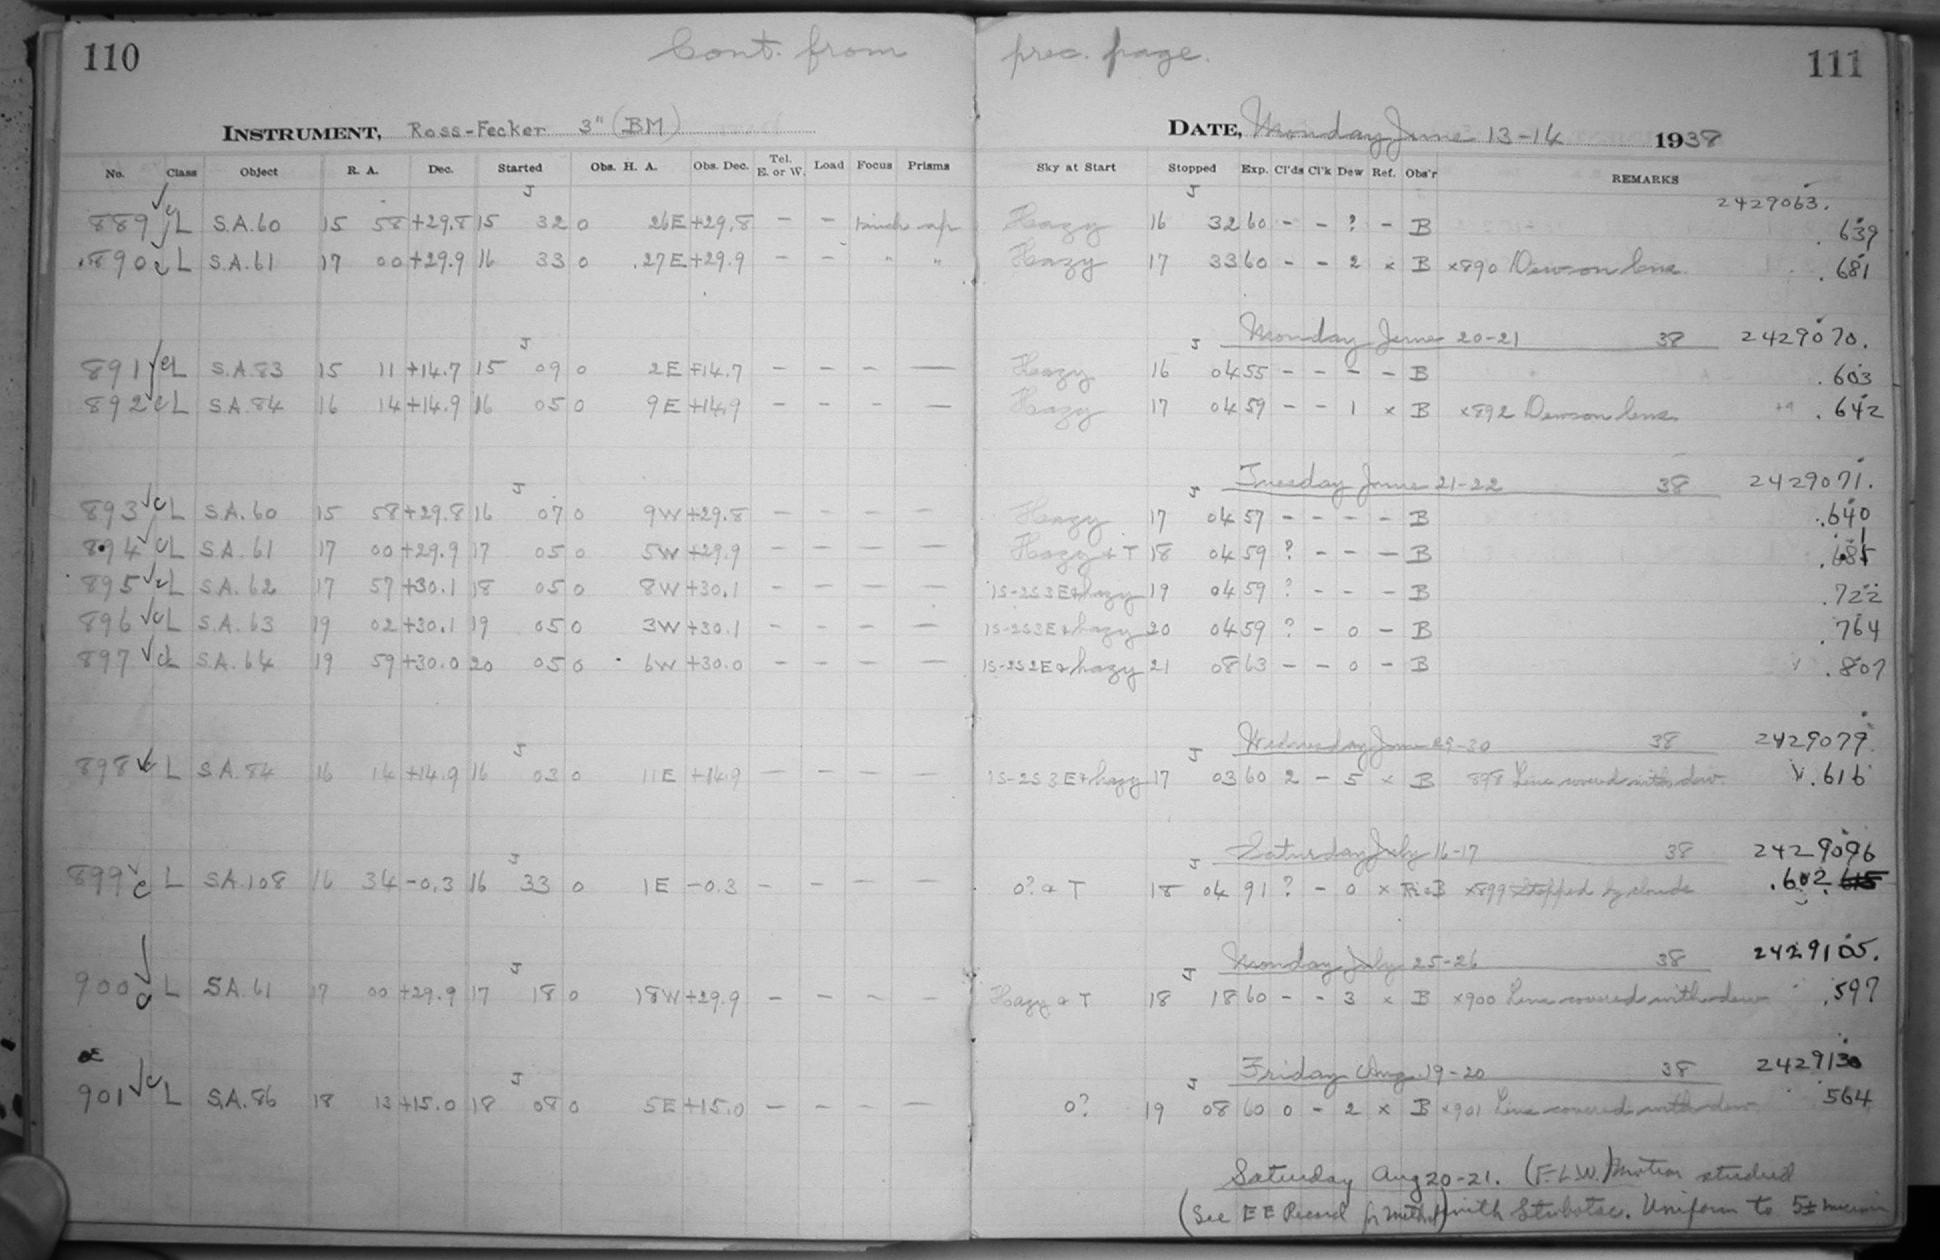 110 Cont. from prec. page. 111
INSTRUMENT, Ross-Fecker 3" (BM) DATE, Monday June 13-14 1938
No. Class Object R. A. Dec. Started Obs. H. A. Obs. Dec. Tel. E. or W. Load Focus Prisms Sky at Start Stopped Exp. Cl'ds Cl'k Dew Ref. Obs'r REMARKS
J J 2429063.
889 L S.A.60 15 58 +29.8 15 32 0 26E +29.8 - - Hazy 16 32 60 - - ? - B .639
890 c L S.A.61 17 00 +29.9 16 33 0 .27E +29.9 - - " " Hazy 17 33 60 - - 2 x B x890 Dew on lens .681
J J Monday June 20-21 38 2429070.
891 c L S.A.83 15 11 +14.7 15 09 0 2E +14.7 - - - - Hazy 16 04 55 - - - - B .603
892 c L S.A.84 16 14 +14.9 16 05 0 9E +14.9 - - - - Hazy 17 04 59 - - 1 x B x892 Dew on lens .642
J J Tuesday June 21-22 38 2429071.
893 c L S.A.60 15 58 +29.8 16 07 0 9W +29.8 - - - - Hazy 17 04 57 - - - - B .640
894 c L S.A.61 17 00 +29.9 17 05 0 5W +29.9 - - - - Hazy & T 18 04 59 ? - - - B
895 c L S.A.62 17 57 +30.1 18 05 0 8W +30.1 - - - - 1S-2S 3E & hazy 19 04 59 ? - - - B .722
896 c L S.A.63 19 02 +30.1 19 05 0 3W +30.1 - - - - 1S-2S 3E & hazy 20 04 59 ? - 0 - B .764
897 c L S.A.64 19 59 +30.0 20 05 0 6W +30.0 - - - - 1S-2S 2E & hazy 21 08 63 - - 0 - B .807
J J Wednesday June 29-30 38 2429079.
898 c L S.A.84 16 14 +14.9 16 03 0 11E +14.9 - - - - 1S-2S 3E & hazy 17 03 60 2 - 5 x B 898 Lens covered with dew .616
J J Saturday July 16-17 38 2429096
899 c L S.A.108 16 34 -0.3 16 33 0 1E -0.3 - - - - 0? & T 18 04 91 ? - 0 x x899 Stopped by clouds .602
J J Monday July 25-26 38 2429105.
900 c L S.A.61 17 00 +29.9 17 18 0 18W +29.9 - - - - Hazy & T 18 18 60 - - 3 x B x900 Lens covered with dew .597
J J Friday Aug. 19-20 38 2429130
901 c L S.A.86 18 13 +15.0 18 08 0 5E +15.0 - - - - 0? 19 08 60 0 - 2 x B x901 Lens covered with dew 564
Saturday Aug 20-21. (F.L.W.) Motion studied
(See EE Record for method) with Stubotac. Uniform to 5± micron